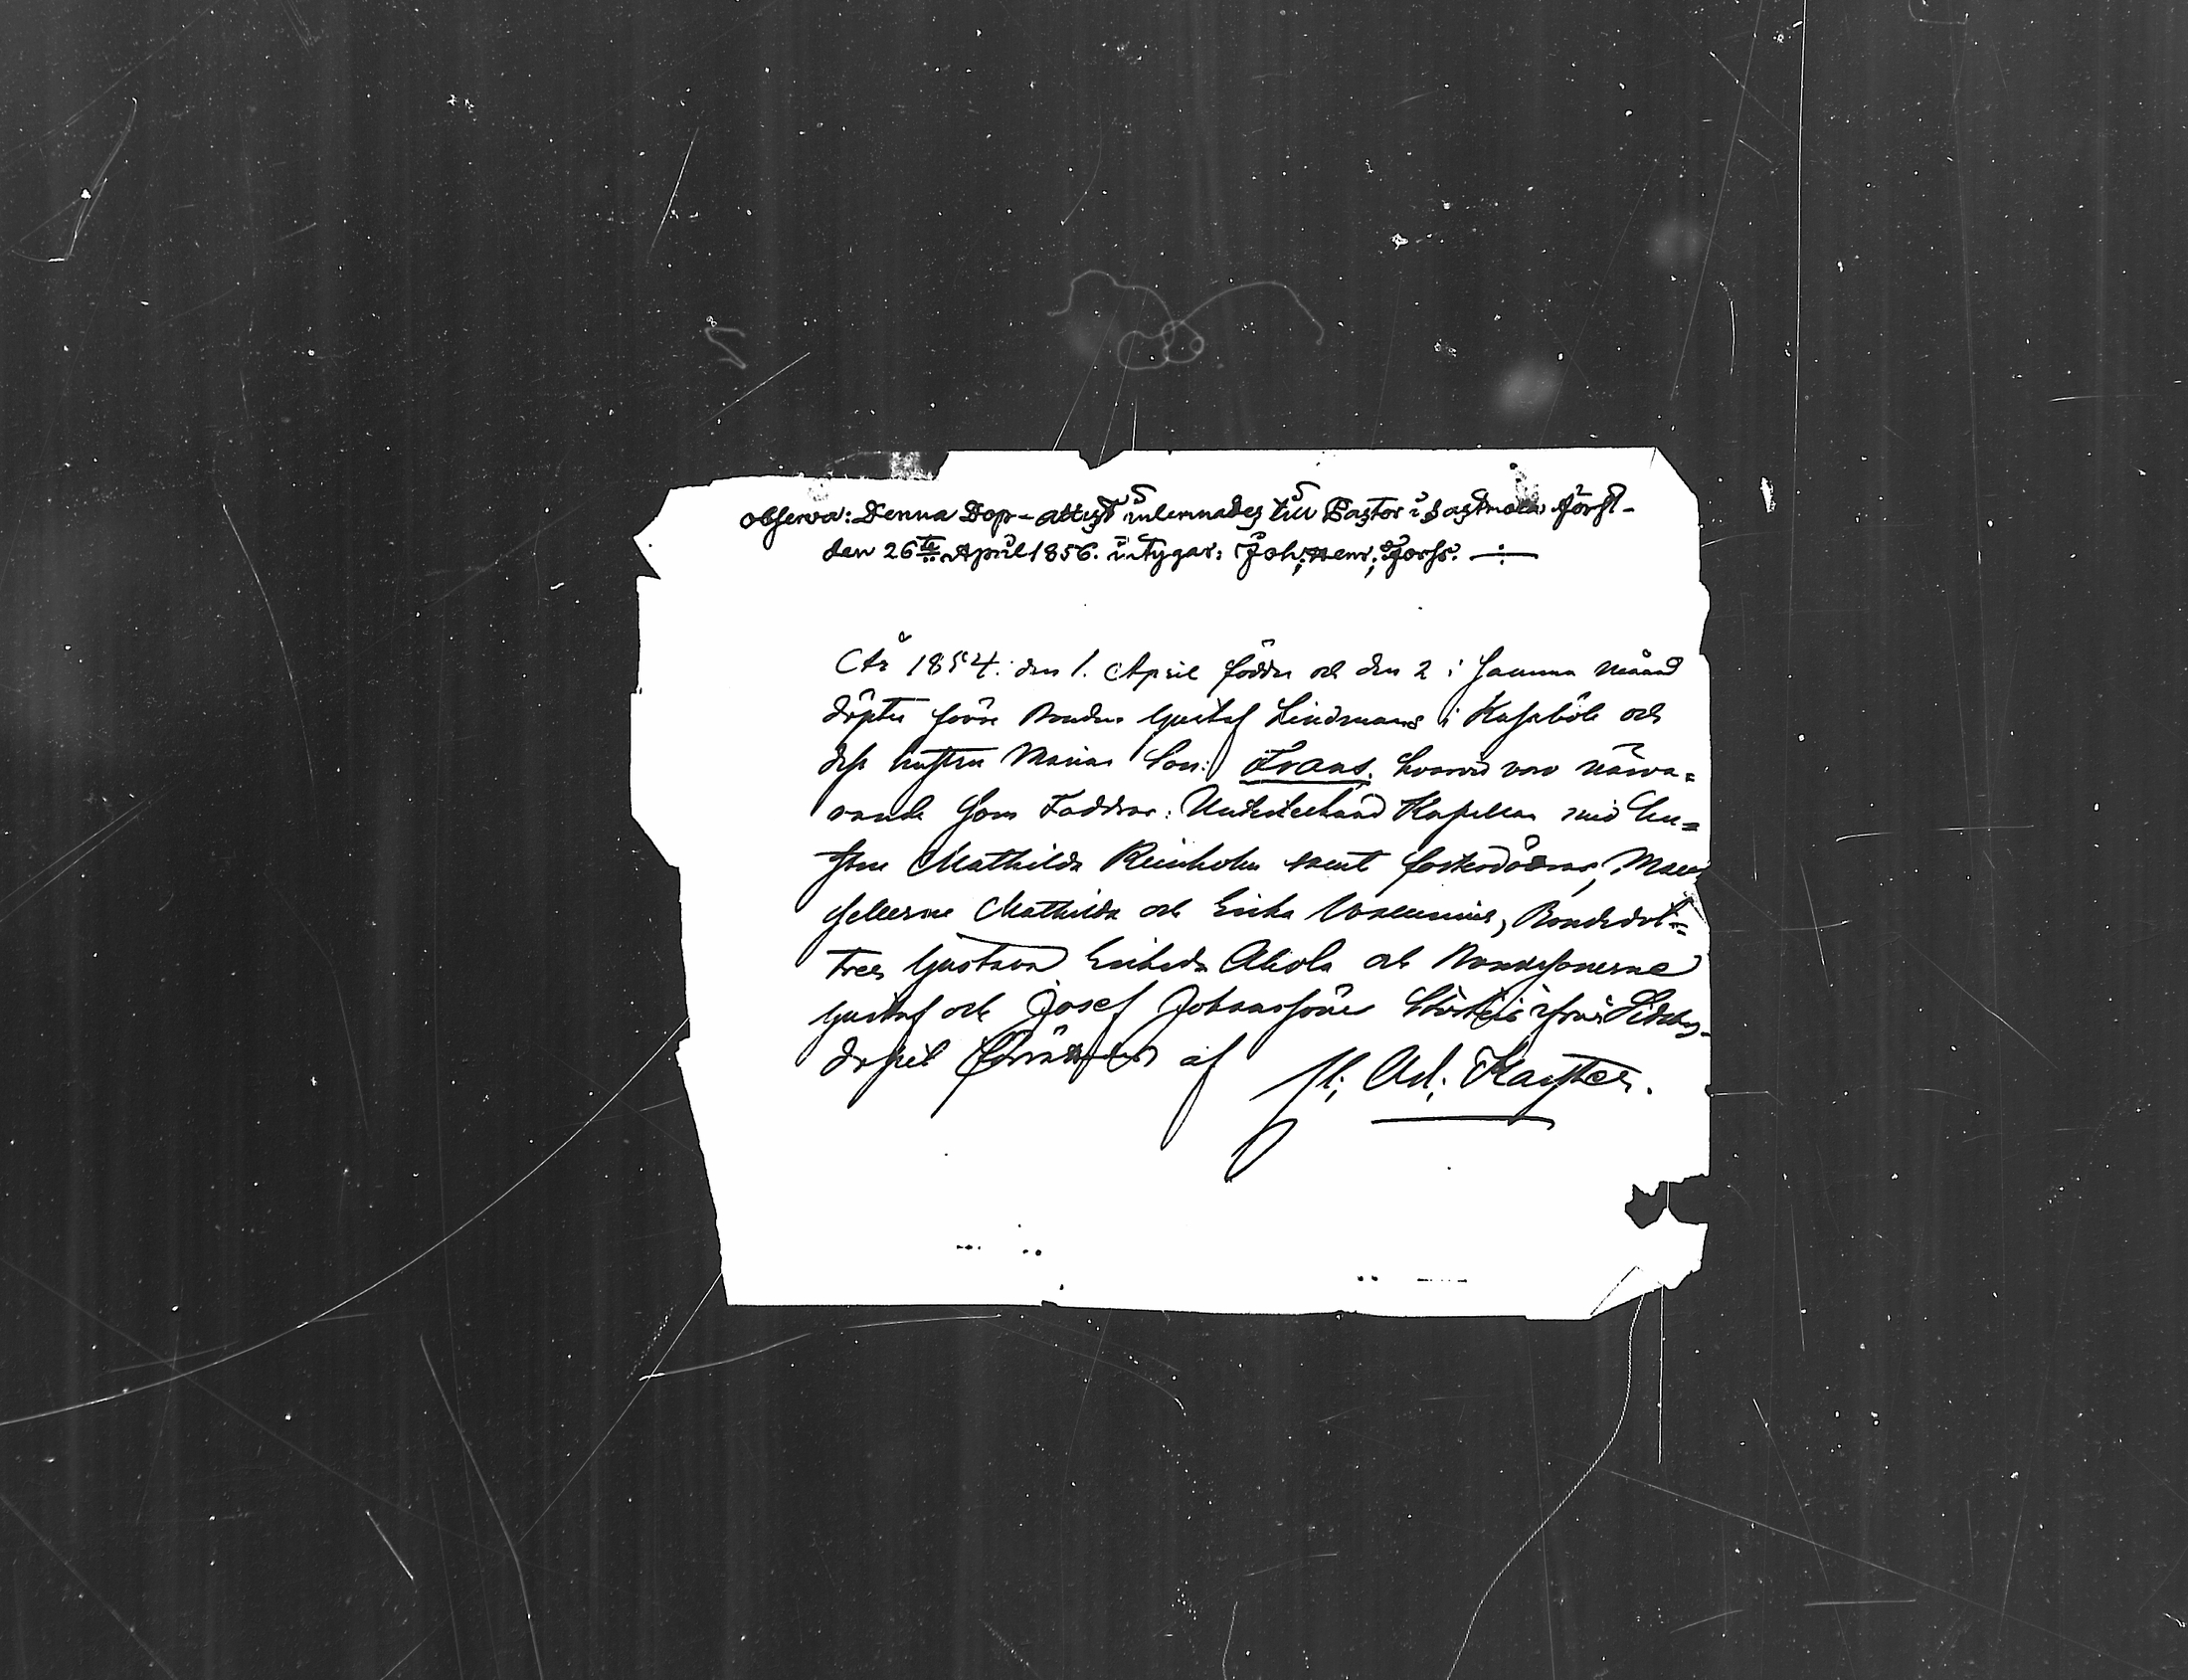 observa: Denna Dop-attest inlemnades till Pastor i Sastmola först-
den 26te April 1856. intygar: Joh; Henr; Forss.
År 1854: den 1. April födde och den 2 i samma månad
döptes Bonden Gustaf Lindmans i Kasaböle och
dess hustru Marias Son: Frans, hvarvid voro närva=
rande som Faddrar: Kapellan med hu=
stru Mathilda Reinholm samt fosterdöttrar, Mam
sellerne Mathilda och Erika Wallenius, Bondedot=
tren Gustava Eriksdr Ahola och Bondesönerne
Gustaf och Josef Johanssöner ifrån Sideby.
dopet af M. Ad. Kayster.